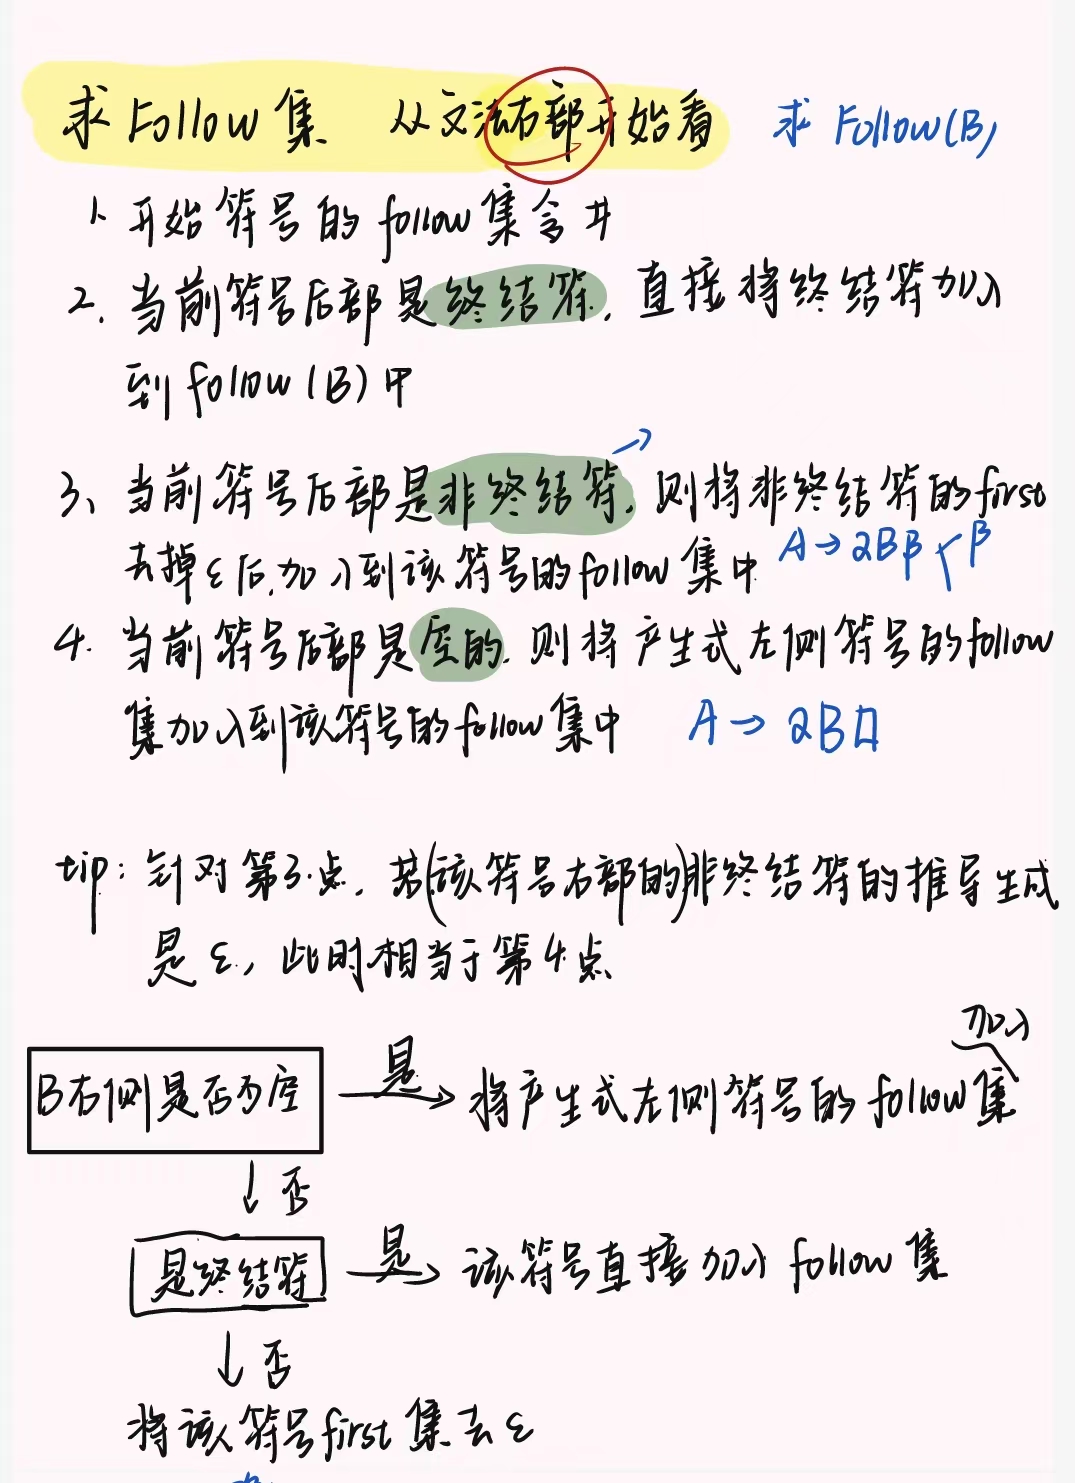 求 Follow 集 从文法右部开始看 求 Follow(B)
1. 开始符号的 follow 集含 #
2. 当前符号后部是终结符, 直接将终结符加入
到 follow (B) 中
3、当前符号后部是非终结符, 则将非终结符的first
去掉ε后,加入到该符号的follow 集中 A→αBβ β
4. 当前符号后部是空的, 则将产生式左侧符号的follow
集加入到该符号的follow集中 A→αB□
tip: 针对第3点, 若(该符号右部的)非终结符的推导生成
是 ε, 此时相当于第4点
加入
B右侧是否为空 是 将产生式左侧符号的 follow集
否
是终结符 是 该符号直接加入 follow 集
否
将该符号first 集去 ε